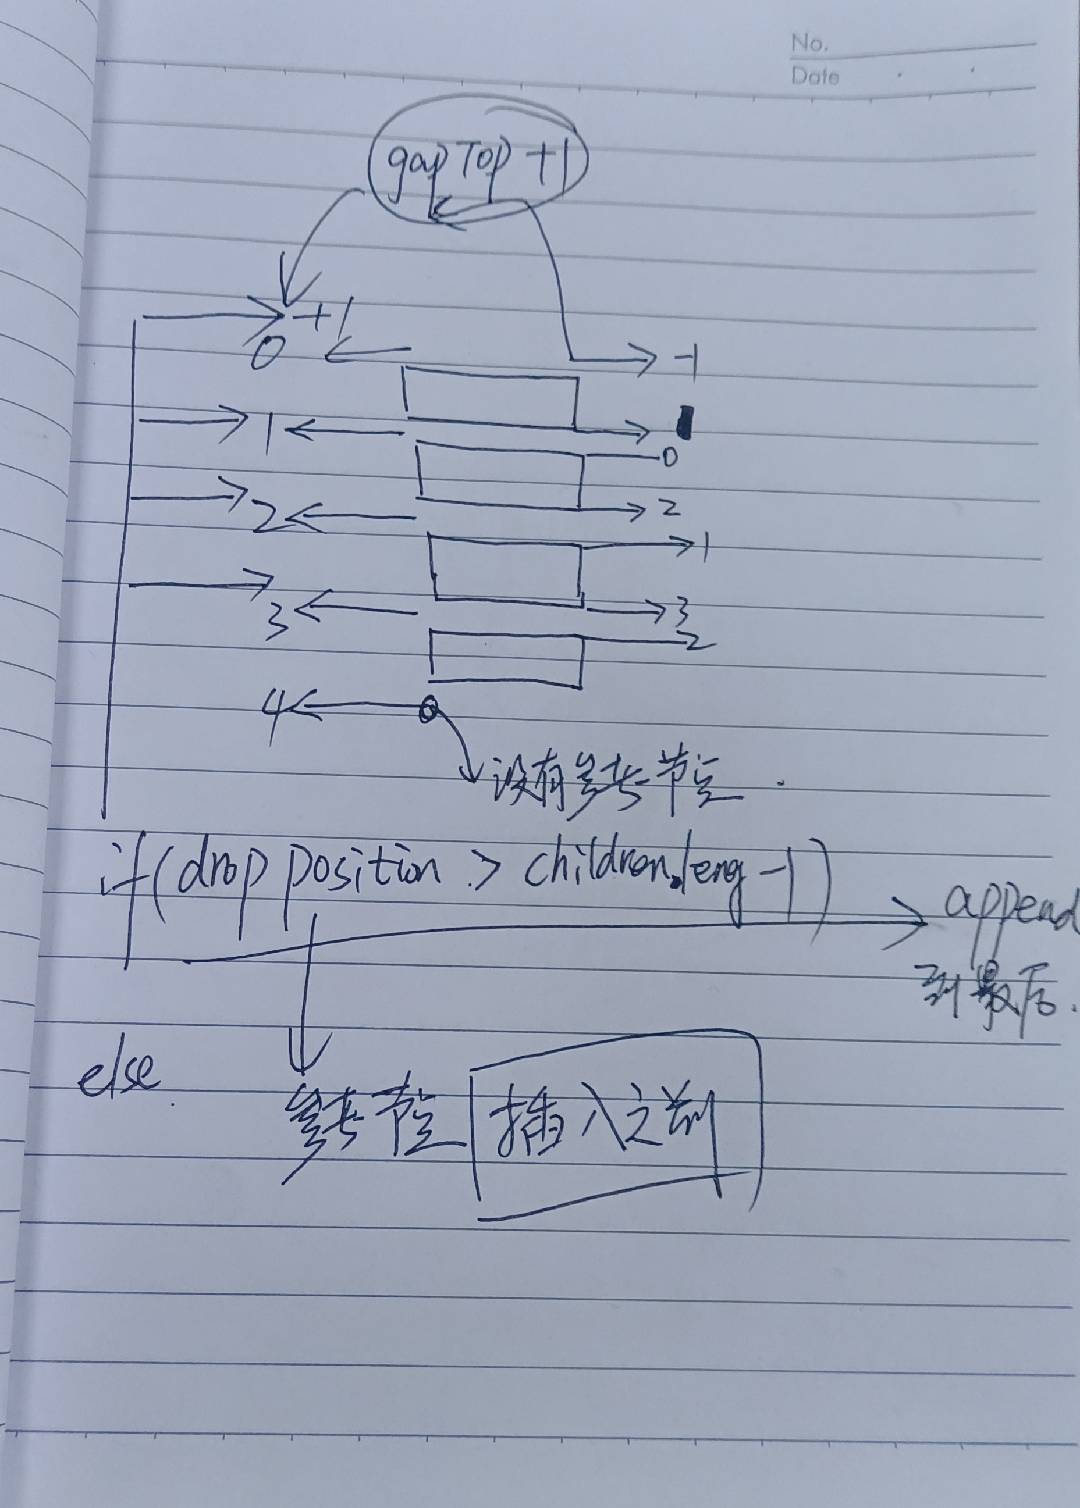 No.
Date
gap Top +1
+1
0
-1
1
0
2
2
1
3
3
2
4
没有参考节点.
if(drop position > children.leng -1)
append
到最后.
else
参考节点 插入之前